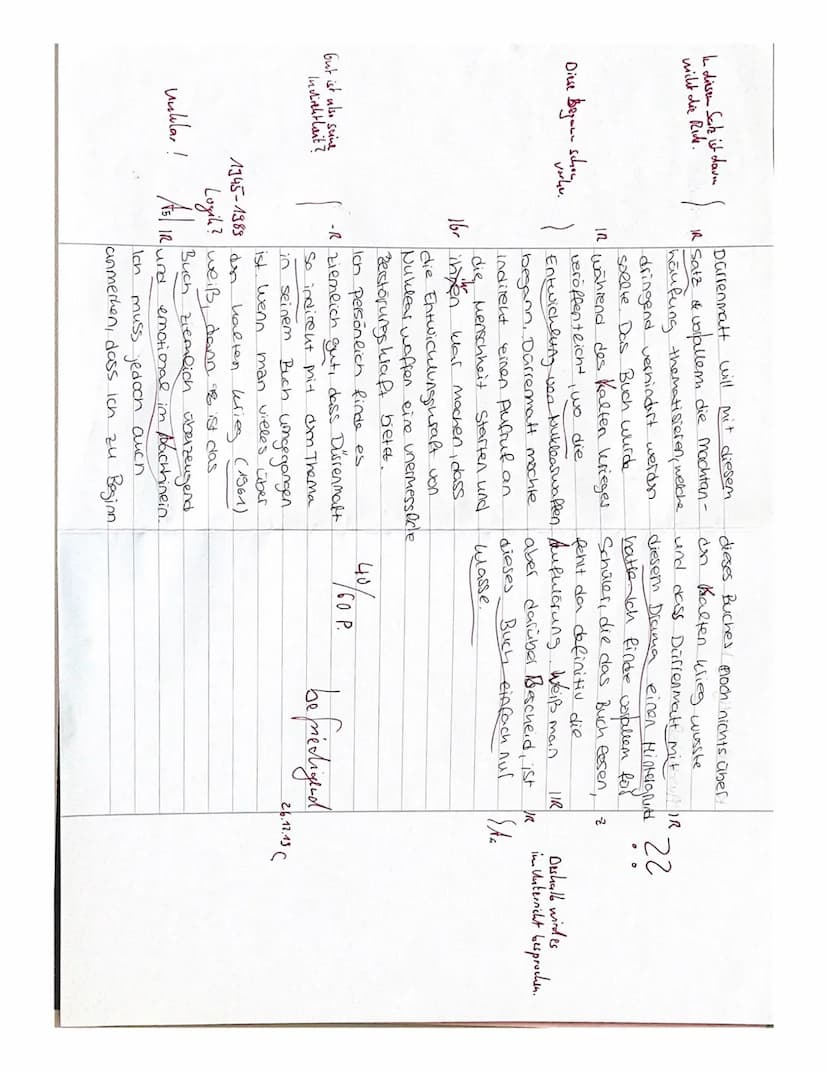 In diesem Satz ist davon
nicht die Rede.
Diese Begann schon
vorher.
Gut ist also seine
Indirektheit?
1945-1989
Logik?
Unklar!
Dürrenmatt will mit diesem
Satz vorallem die Machtan-
häufung thematisieren, welche
dringend vermindert werden
sollte. Das Buch wurde
während des Kalten Krieges
veröffentlicht, wo die
Entwicklung von Nuklearwaffen
begann. Dürrenmatt möchte
indirekt einen Aufruf an
die Menschheit starten und
ihr klar machen, dass
die Entwicklungskraft von
Nuklearwaffen eine unermessliche
Zerstörungskraft bietet.
Ich persönlich finde es
ziemlich gut, dass Dürrenmatt
so indirekt mit dem Thema
in seinem Buch umgegangen
ist. Wenn man vieles über
den kalten Krieg (1961)
weiß, dann ist das
Buch ziemlich überzeugend
und emotional im Nachhinein.
Ich muss jedoch auch
anmerken, dass ich zu Beginn
dieses Buches noch nichts über
den Kalten Krieg wusste
und dass Dürrenmatt mit
diesem Drama einen Hintergrund
hatte. Ich finde vorallem für
Schüler, die das Buch lesen,
fehlt da definitiv die
Aufklärung. Weiß man
aber darüber Bescheid, ist
dieses Buch einfach nur
klasse.
40/60 P.
befriedigend
R
R
-R
Ibr
As
IR
IR
??
z
IIR
IR
A
Deshalb wird es
im Unterricht besprochen.